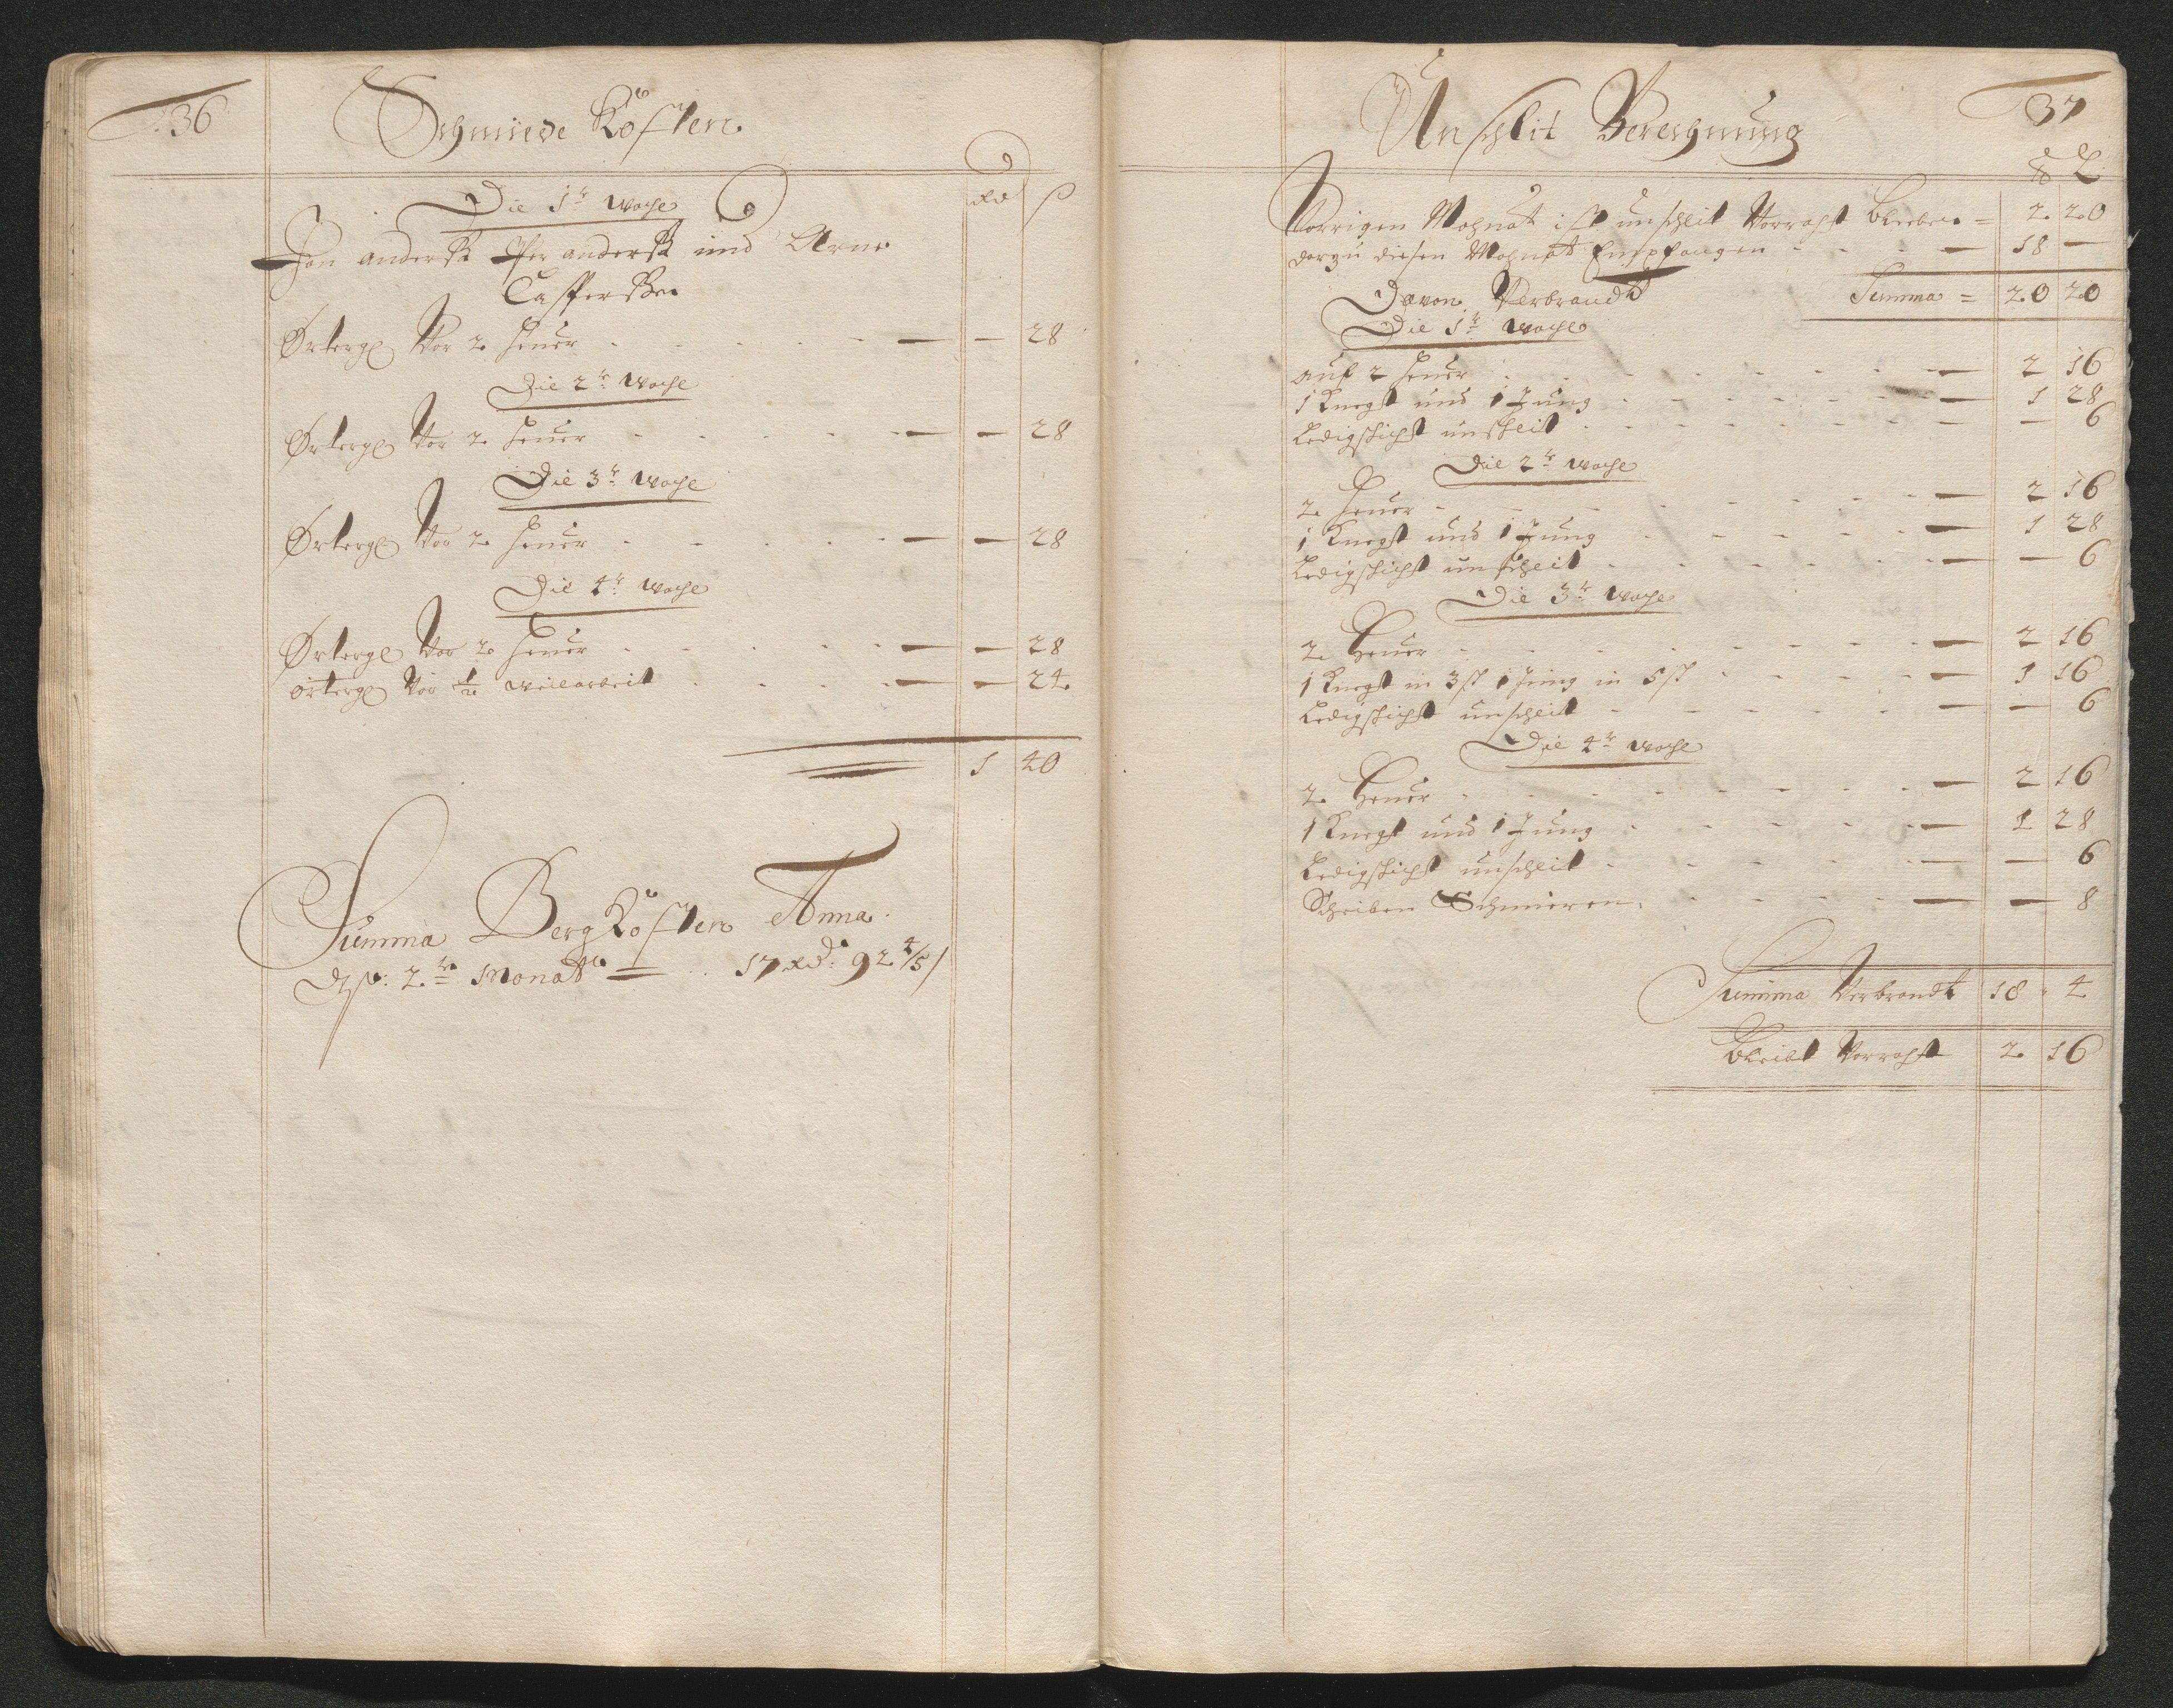 36
Schmiede Kösten
Rd ß
Die 1te woche
Jon anderß Per anderß und Arne
Casperßen
Örterge Vor 2 heuer - - - - - — — 28
Die 2te woche
Örterge Vor 2 heuer - - - - - — — 28
Die 3te woche
Örterge Vor 2 heuer - - - - - — — 28
Die 4te woche
Örterge Vor 2 heuer - - - - - — — 28
örterge Vor 1/2 weilarbeit - - - - — — 24
1 40
Summa Berg Kösten Anna
2te Monat = 17 Rd: 92 4/5 /
37
Unschlit Berechnung
℔ L
Vorrigen Mohnat ist unschleit Vorraht bleiben = 2 20
darzu diesen Mohnat Empfangen - - - — 18 —
Summa = 20 20
Davon Verbrandt
Die 1te woche
auf 2 heuer - - - - - - - — 2 16
1 Knegt und 1 Jung - - - - - - — 1 28
Ledigschicht unschleit - - - - - - — — 6
Die 2te woche
2 heuer - - - - - - - - — 2 16
1 Knegt und 1 Jung - - - - - — 1 28
Ledigschicht unschleit - - - - - — — 6
Die 3te woche
2 heuer - - - - - - - - — 2 16
1 Knegt in 3ß 1 Jung in 5ß - - - - — 1 16
Ledigschicht unschleit - - - - - — — 6
Die 4te woche
2 heuer - - - - - - - - — 2 16
1 Knegt und 1 Jung - - - - - - — 1 28
Ledigschicht unschleit - - - - - — — 6
Scheiben Schmieren - - - - - — — 8
Summa Verbrandt 18 - 4
bleibt Vorraht 2 16